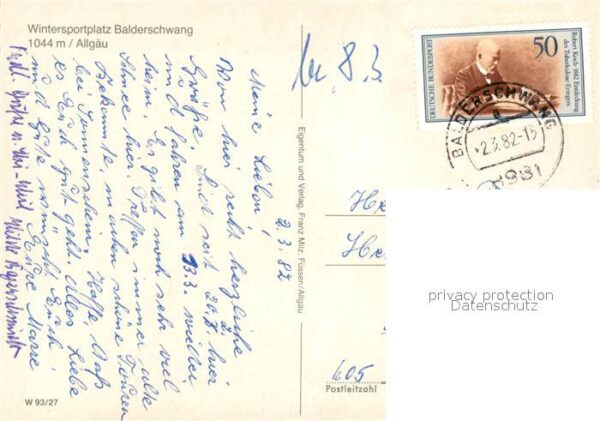 Wintersportplatz Balderschwang
1044 m / Allgäu
2.3.82
Meine Lieben!
Von hier recht herzliche
Grüße. Sind seit 20.2. hier
und fahren am 13.3. wieder
heim. Es gibt noch sehr viel
Schnee hier. Treffen immer alte
Bekannte, machen schöne Touren
bei Sonnenschein. Hoffe, daß
es Euch gut geht. Alles Liebe
und Gute wünscht Euch
Eure
Eigentum und Verlag Franz Milz, Füssen/Allgäu
8.3
50
Robert Koch 1882 Entdeckung
des Tuberkulose-Erregers
DEUTSCHE BUNDESPOST
BALDERSCHWANG
-2.3.82-15
8981
He
He
605
Postleitzahl
privacy protection
Datenschutz
W 93/27